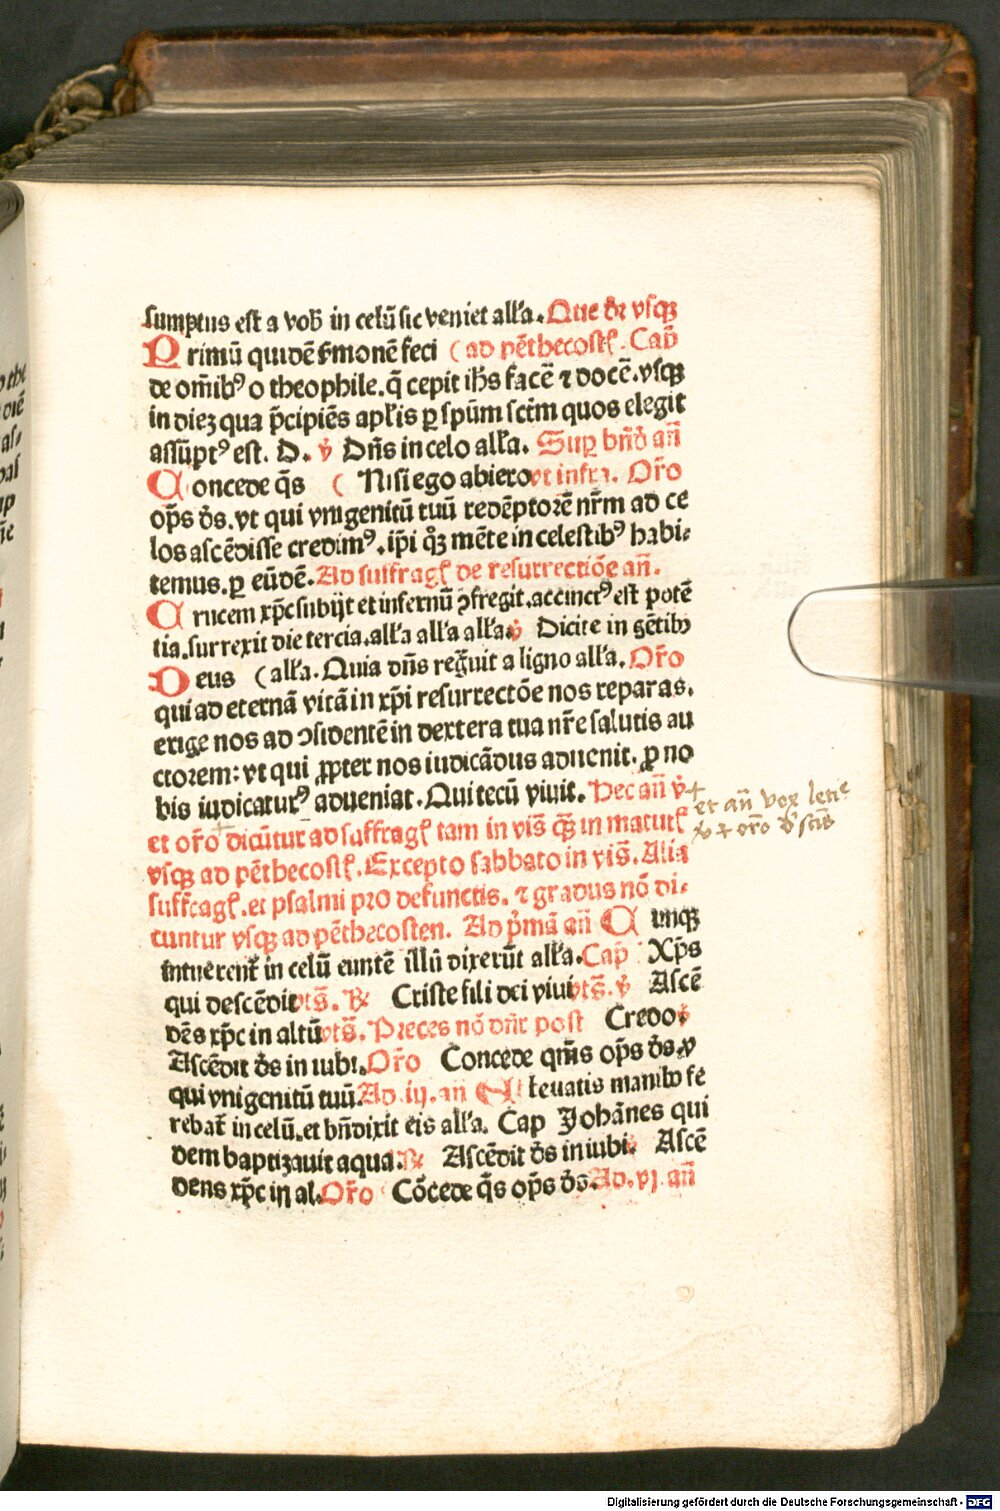 sumptus est a vob̄ in celū sic veniet all'a. Que dr̄ vsqꝫ
Primū quidē s̄monē feci ( ad pēthecostꝭ. Cap̄
de om̄ibꝰ o theophile. q̄ cepit ih̄s facē ⁊ docē. vsqꝫ
in dieꝫ qua p̄cipiēs apl'is ꝑ sp̄um sct̄m quos elegit
assūptꝰ est. D. v̄ Dn̄s in celo all'a. Suꝑ bn̄d̄ an̄
Concede q̄s ( Nisi ego abiero vt infra. Or̄o
op̄s d̄s. vt qui vnigenitū tuū redēptorē nr̄m ad ce
los ascēdisse credimꝰ. ip̄i qꝫ mēte in celestibꝰ habi-
temus. ꝑ eūdē. Ad suffragꝭ de resurrectiōe an̄.
Crucem xp̄c subijt et infernū ꝯfregit. accinctꝰ est potē
tia. surrexit die tercia. all'a all'a all'a v̄ Dicite in gētibꝫ
Deus ( all'a. Quia dn̄s regͣuit a ligno all'a. Or̄o
qui ad eternā vitā in xp̄i resurrectōe nos reparas.
erige nos ad ↄsidentē in dextera tua nr̄e salutis au
ctorem: vt qui ꝓpter nos iudicādus aduenit. ꝓ no
bis iudicaturꝰ adueniat. Qui tecū viuit. Hec an̄ v̄
et or̄o dicūtur ad suffragꝭ tam in vis̄ qꝫ in matutꝭ
vsqꝫ ad pēthecostꝭ. Excepto sabbato in vis̄. Alia
suffragꝭ. et psalmi pro defunctis. ⁊ gradus nō di-
cuntur vsqꝫ ad pēthecosten. Ad p̄mā an̄ Cunqꝫ
intuerent̄ in celū euntē illū dixerūt all'a. Cap̄ Xp̄s
qui descēdit vts̄. ℟ Criste fili dei viui vts̄. v̄ Ascē
dēs xp̄c in altū vts̄. Preces nō dn̄r post Credo v̄
Ascēdit d̄s in iubi. Or̄o Concede qm̄s op̄s d̄s. v
qui vnigenitū tuū. Ad. iij. an̄ Eleuatis manibꝫ fe
rebat̄ in celū. et bn̄dixit eis all'a. Cap Johānes qui
dem baptizauit aqua. ℟ Ascēdit d̄s in iubi. Ascē
dens xp̄c in al. Or̄o Cōcede q̄s op̄s d̄s. Ad. vj. an̄
et an̄ vox letie
v̄ ⁊ or̄o
Digitalisierung gefördert durch die Deutsche Forschungsgemeinschaft - DFG